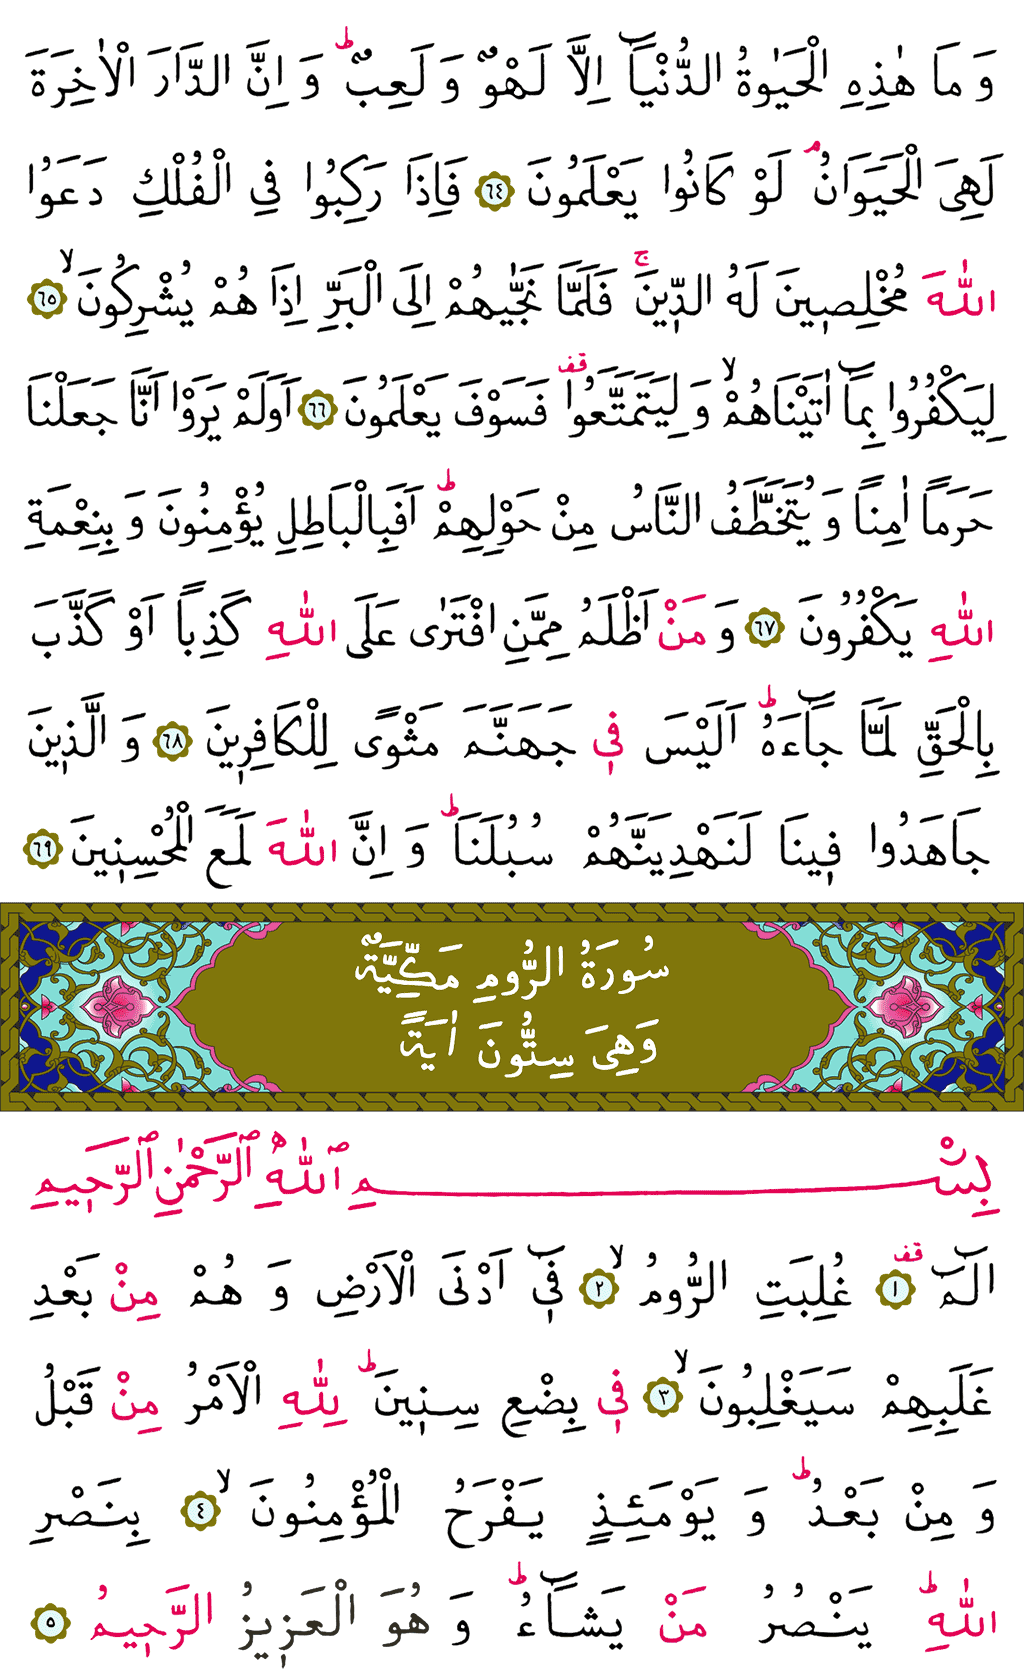 وَ مَا هٰذِهِ الْحَيٰوةُ الدُّنْيَٓا اِلَّا لَهْوٌ وَ لَعِبٌۜ وَ اِنَّ الدَّارَ الْاٰخِرَةَ
لَهِيَ الْحَيَوَانُۢ لَوْ كَانُوا يَعْلَمُونَ ﴿٦٤﴾ فَاِذَا رَكِبُوا فِي الْفُلْكِ دَعَوُا
اللّٰهَ مُخْلِصٖينَ لَهُ الدّٖينَۚ فَلَمَّا نَجّٰيهُمْ اِلَى الْبَرِّ اِذَا هُمْ يُشْرِكُونَۙ ﴿٦٥﴾
لِيَكْفُرُوا بِمَٓا اٰتَيْنَاهُمْۙ وَ لِيَتَمَتَّعُواقف فَسَوْفَ يَعْلَمُونَ ﴿٦٦﴾ اَوَلَمْ يَرَوْا اَنَّا جَعَلْنَا
حَرَمًا اٰمِنًا وَ يُتَخَطَّفُ النَّاسُ مِنْ حَوْلِهِمْۜ اَفَبِالْبَاطِلِ يُؤْمِنُونَ وَ بِنِعْمَةِ
اللّٰهِ يَكْفُرُونَ ﴿٦٧﴾ وَ مَنْ اَظْلَمُ مِمَّنِ افْتَرٰى عَلَى اللّٰهِ كَذِبًا اَوْ كَذَّبَ
بِالْحَقِّ لَمَّا جَٓاءَهُۜ اَلَيْسَ فٖي جَهَنَّمَ مَثْوًى لِلْكَافِرٖينَ ﴿٦٨﴾ وَ الَّذٖينَ
جَاهَدُوا فٖينَا لَنَهْدِيَنَّهُمْ سُبُلَنَاۜ وَ اِنَّ اللّٰهَ لَمَعَ الْمُحْسِنٖينَ ﴿٦٩﴾
سُورَةُ الرُّومِ مَكِّيَّةٌ
وَهِيَ سِتُّونَ اٰيَةً
بِسْمِ ٱللّٰهِ ٱلرَّحْمٰنِ ٱلرَّحٖيمِ
الٓمٓقف ﴿١﴾ غُلِبَتِ الرُّومُۙ ﴿٢﴾ فٖٓي اَدْنَى الْاَرْضِ وَ هُمْ مِنْ بَعْدِ
غَلَبِهِمْ سَيَغْلِبُونَۙ ﴿٣﴾ فٖي بِضْعِ سِنٖينَۜ لِلّٰهِ الْاَمْرُ مِنْ قَبْلُ
وَ مِنْ بَعْدُۜ وَ يَوْمَئِذٍ يَفْرَحُ الْمُؤْمِنُونَۙ ﴿٤﴾ بِنَصْرِ
اللّٰهِۜ يَنْصُرُ مَنْ يَشَٓاءُۜ وَ هُوَ الْعَزٖيزُ الرَّحٖيمُ ﴿٥﴾